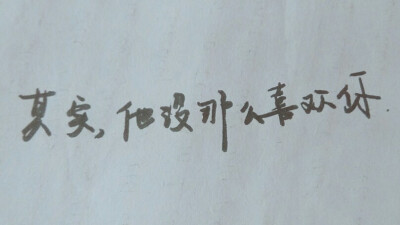 其实,他没那么喜欢你.